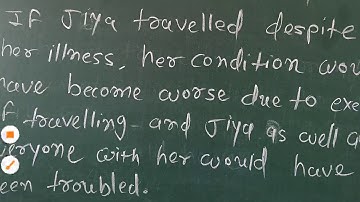 If Jiya travelled despite
her illness, her condition wou
have become worse due to exe
f travelling and Jiya as well a
eryone with her would have
een troubled.